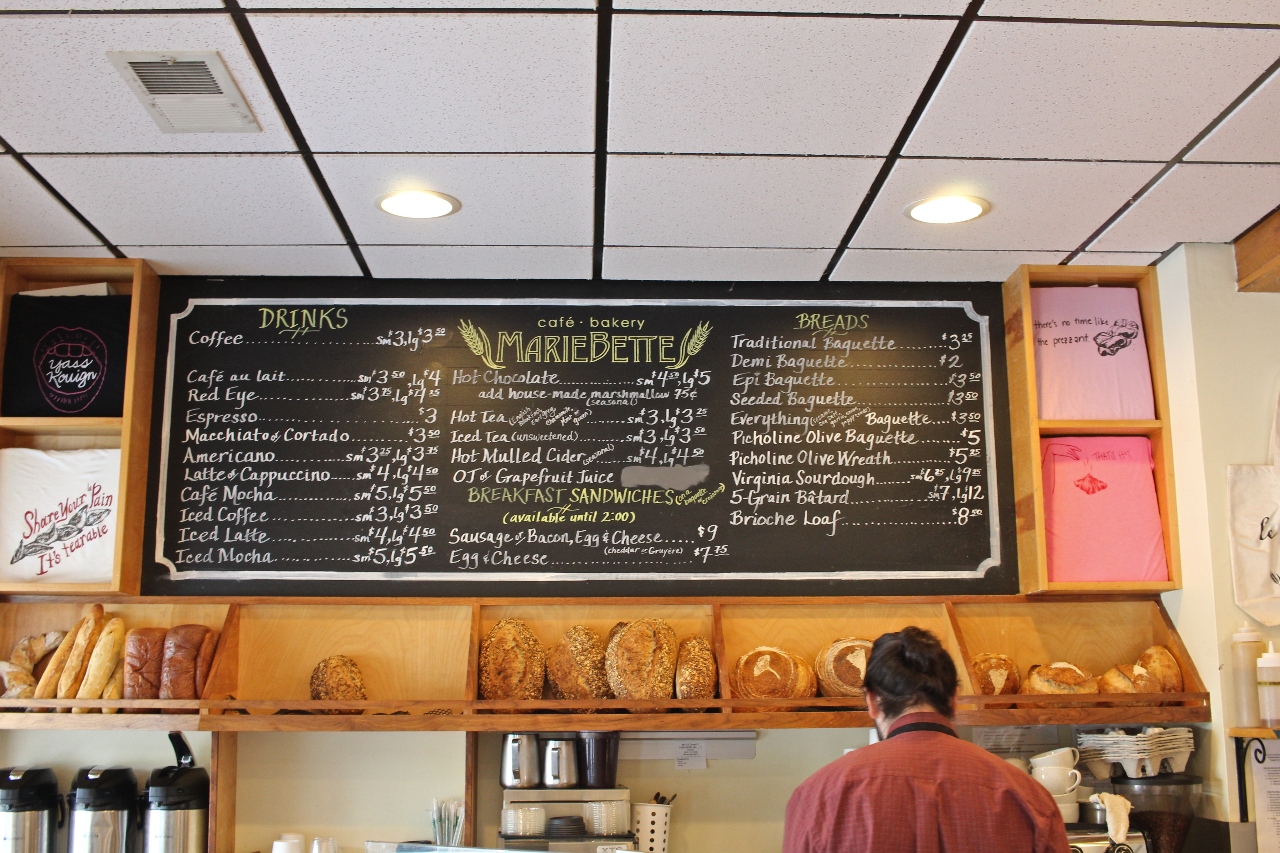 DRINKS
Coffee sm $3, lg $3.50
Café au lait sm $3.50, lg $4
Red Eye sm $3.75, lg $4.25
Espresso $3
Macchiato or Cortado $3.50
Americano sm $3.25, lg $3.75
Latte or Cappuccino sm $4, lg $4.50
Café Mocha sm $5, lg $5.50
Iced Coffee sm $3, lg $3.50
Iced Latte sm $4, lg $4.50
Iced Mocha sm $5, lg $5.50
café · bakery
MARIEBETTE
Hot Chocolate sm $4.50, lg $5
add house-made marshmallow 75¢
(seasonal)
Hot Tea sm $3, lg $3.25
Iced Tea (unsweetened) sm $3, lg $3.50
Hot Mulled Cider (seasonal) sm $4, lg $4.50
OJ or Grapefruit Juice
BREAKFAST SANDWICHES
(available until 2:00)
Sausage or Bacon, Egg & Cheese $9
(cheddar or Gruyère)
Egg & Cheese $7.75
BREADS
Traditional Baguette $3.25
Demi Baguette $2
Epi Baguette $3.50
Seeded Baguette $3.50
Everything Baguette $3.50
Picholine Olive Baguette $5
Picholine Olive Wreath $5.25
Virginia Sourdough
5-Grain Bâtard sm $7, lg $12
Brioche Loaf $8.50
yass
Kouign
Share Your Pain
It's tearable
there's no time like
the prezzant